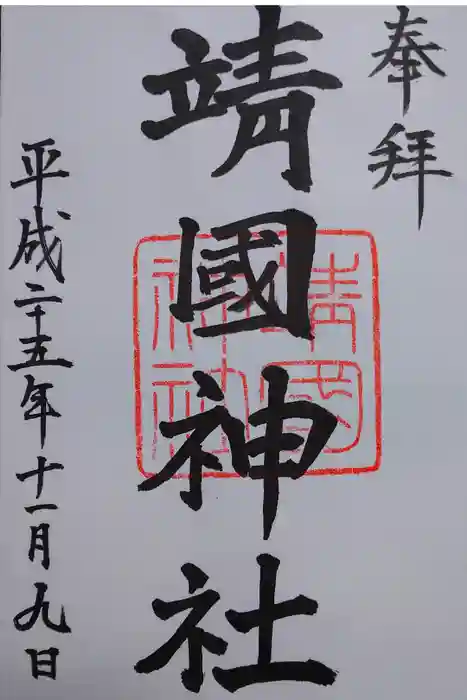 奉拝
靖國神社
靖國神社
平成二十五年十一月九日